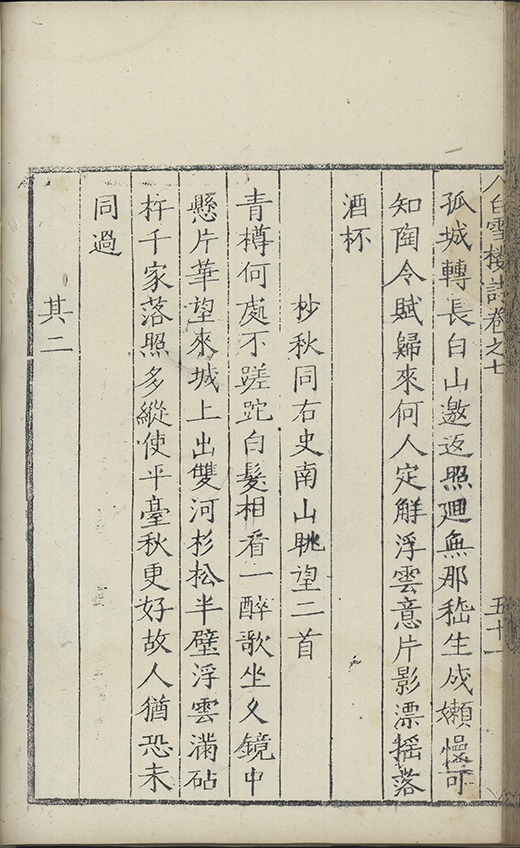 白雪樓詩卷之七 五十一
孤城轉長白山邀返照廻無那嵇生成嬾慢可
知陶令賦歸來何人定解浮雲意片影漂搖落
酒杯
杪秋同右史南山眺望二首
青樽何處不蹉跎白髮相看一醉歌坐久鏡中
懸片華望來城上出雙河杉松半壁浮雲滿砧
杵千家落照多縱使平臺秋更好故人猶恐未
同過
其二